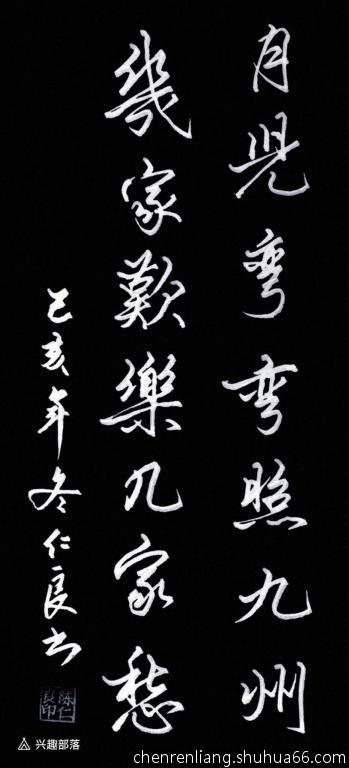 月児彎彎照九州
幾家歎樂几家愁
己亥年冬仁良书
陈仁良印
兴趣部落
chenrenliang.shuhua66.com